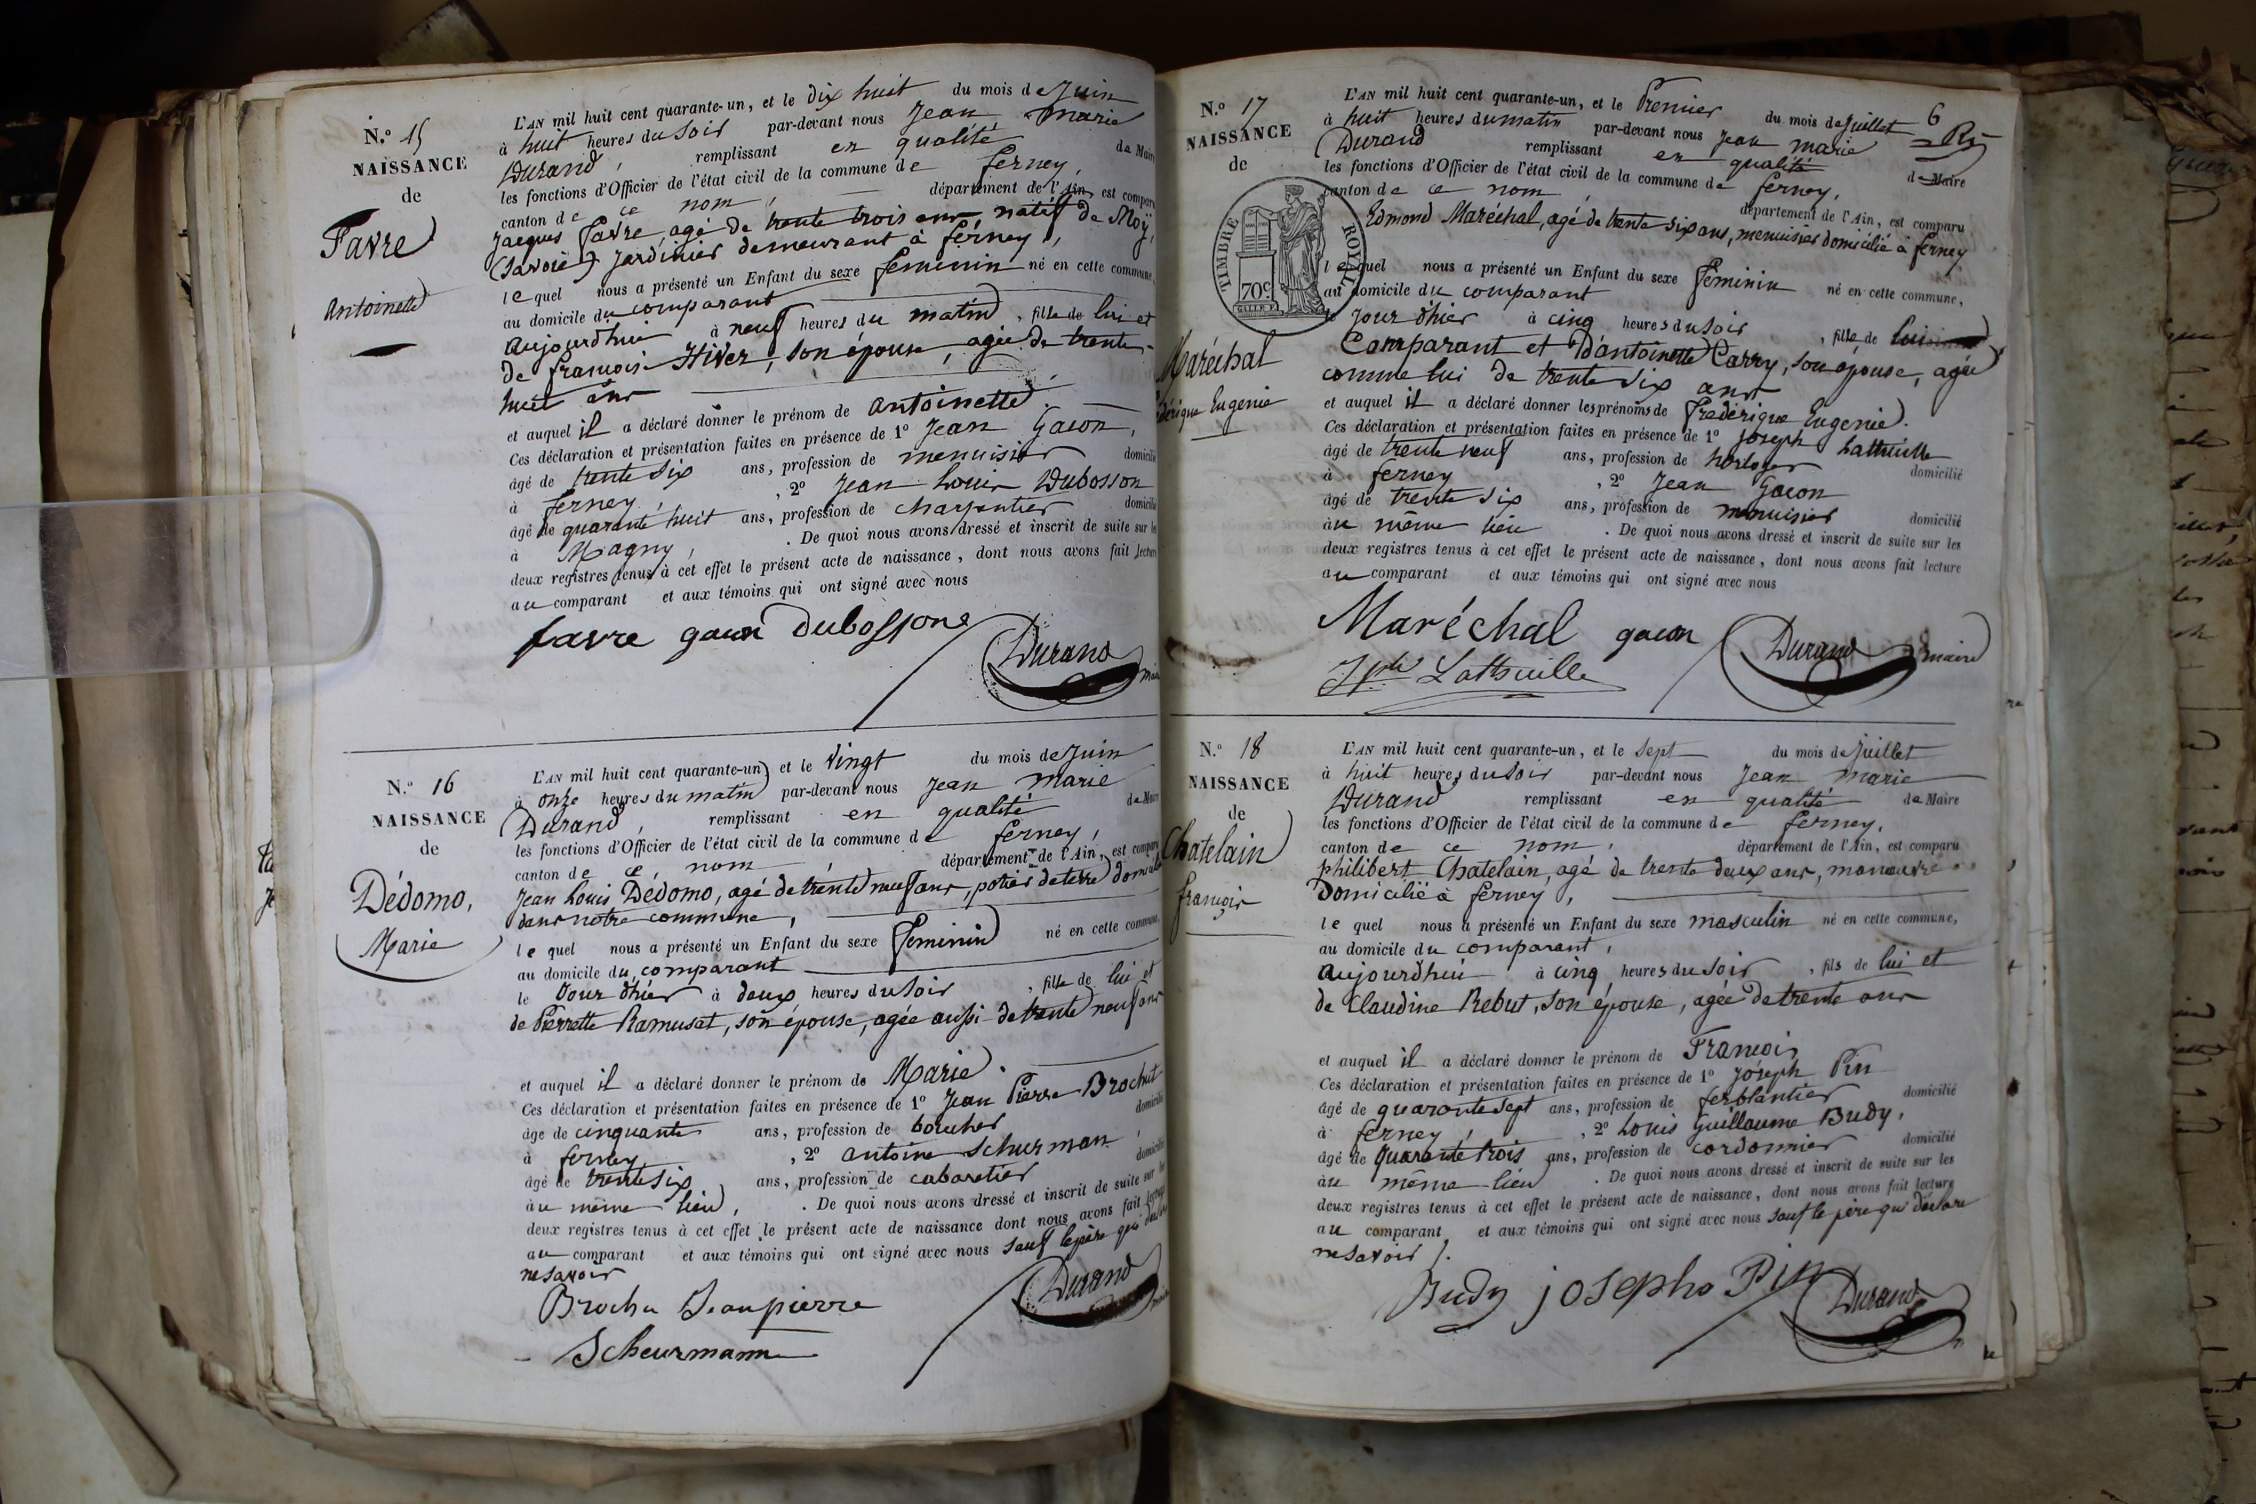 N.º 15
NAISSANCE
de
Favre
Antoinette
L'AN mil huit cent quarante-un, et le dix huit du mois de Juin
à huit heures du soir par-devant nous Jean Marie
Durand, remplissant en qualité de Maire
les fonctions d'Officier de l'état civil de la commune de ferney,
canton de ce nom, département de l'Ain, est comparu
Jacques favre, agé de trente trois ans, natif de Moÿ,
(Savoie) Jardinier demeurant à férney,
le quel nous a présenté un Enfant du sexe feminin né en cette commune,
au domicile du comparant
aujourdhui à neuf heures du matin, fille de lui et
de françoise Hiver, son épouse, agée de trente
huit ans
et auquel il a déclaré donner le prénom de antoinette.
Ces déclaration et présentation faites en présence de 1º Jean Gacon,
âgé de trente six ans, profession de menuisier domicilié
à ferney, 2º Jean Louis Dubosson
âgé de quarante huit ans, profession de charpentier domicilié
à Magny, . De quoi nous avons dressé et inscrit de suite sur les
deux registres tenus à cet effet le présent acte de naissance, dont nous avons fait lecture
au comparant et aux témoins qui ont signé avec nous
favre gacon dubossone
Durand
maire
N.º 16
NAISSANCE
de
Dédomo,
Marie
L'AN mil huit cent quarante-un, et le vingt du mois de Juin
à onze heures du matin par-devant nous Jean Marie
Durand, remplissant en qualité de Maire
les fonctions d'Officier de l'état civil de la commune de ferney,
canton de ce nom département de l'Ain, est comparu
Jean Louis Dédomo, agé de trente neuf ans, potier de terre domicilié
dans notre commune,
le quel nous a présenté un Enfant du sexe feminin né en cette commune,
au domicile du comparant
le Jour d'hier à deux heures du soir, fille de lui et
de Pierrette Ramuset, son épouse, agée aussi de trente neuf ans
et auquel il a déclaré donner le prénom de Marie.
Ces déclaration et présentation faites en présence de 1º Jean Pierre Brochut
âgé de cinquante ans, profession de boucher domicilié
à ferney, 2º antoine Schurman,
âgé de trente six ans, profession de cabaretier domicilié
au même lieu, . De quoi nous avons dressé et inscrit de suite sur les
deux registres tenus à cet effet le présent acte de naissance dont nous avons fait lecture
au comparant et aux témoins qui ont signé avec nous sauf le père qui déclare
ne savoir
Brochu Jeanpierre
Durand
Scheurmann
N.º 17
NAISSANCE
de
Maréchal
frédérique Eugenie
6
TIMBRE ROYAL
70c
L'AN mil huit cent quarante-un, et le Premier du mois de Juillet
à huit heures du matin par-devant nous Jean Marie
Durand remplissant en qualité de Maire
les fonctions d'Officier de l'état civil de la commune de ferney,
canton de ce nom, département de l'Ain, est comparu
Edmond Maréchal, agé de trente six ans, menuisier domicilié à ferney
le quel nous a présenté un Enfant du sexe féminin né en cette commune,
au domicile du comparant
le jour d'hier à cinq heures du soir, fille de lui
Comparant et D'antoinette Carry, son épouse, agée
comme lui de trente six ans
et auquel il a déclaré donner les prénoms de frédérique Eugenie.
Ces déclaration et présentation faites en présence de 1º Joseph Lathuille
âgé de trente neuf ans, profession de horloger domicilié
à ferney, 2º Jean Gacon
âgé de trente six ans, profession de menuisier domicilié
au même lieu . De quoi nous avons dressé et inscrit de suite sur les
deux registres tenus à cet effet le présent acte de naissance, dont nous avons fait lecture
au comparant et aux témoins qui ont signé avec nous
Maréchal gacon Durand maire
Jph Lathuille
N.º 18
NAISSANCE
de
Chatelain
françois
L'AN mil huit cent quarante-un, et le sept du mois de Juillet
à huit heures du soir par-devant nous Jean Marie
Durand remplissant en qualité de Maire
les fonctions d'Officier de l'état civil de la commune de ferney,
canton de ce nom, département de l'Ain, est comparu
philibert Chatelain, agé de trente deux ans, manœuvre
domicilié à ferney,
le quel nous a présenté un Enfant du sexe masculin né en cette commune,
au domicile du comparant,
aujourdhui à cinq heures du soir, fils de lui et
de Claudine Rebut, son épouse, agée de trente ans
et auquel il a déclaré donner le prénom de François
Ces déclaration et présentation faites en présence de 1º Joseph Pin
âgé de quarante sept ans, profession de ferblantier domicilié
à ferney, 2º Louis Guillaume Budy,
âgé de quarante trois ans, profession de cordonnier domicilié
au même lieu . De quoi nous avons dressé et inscrit de suite sur les
deux registres tenus à cet effet le présent acte de naissance, dont nous avons fait lecture
au comparant et aux témoins qui ont signé avec nous sauf le père qui déclare
ne savoir.
Budy josepho Pin Durand